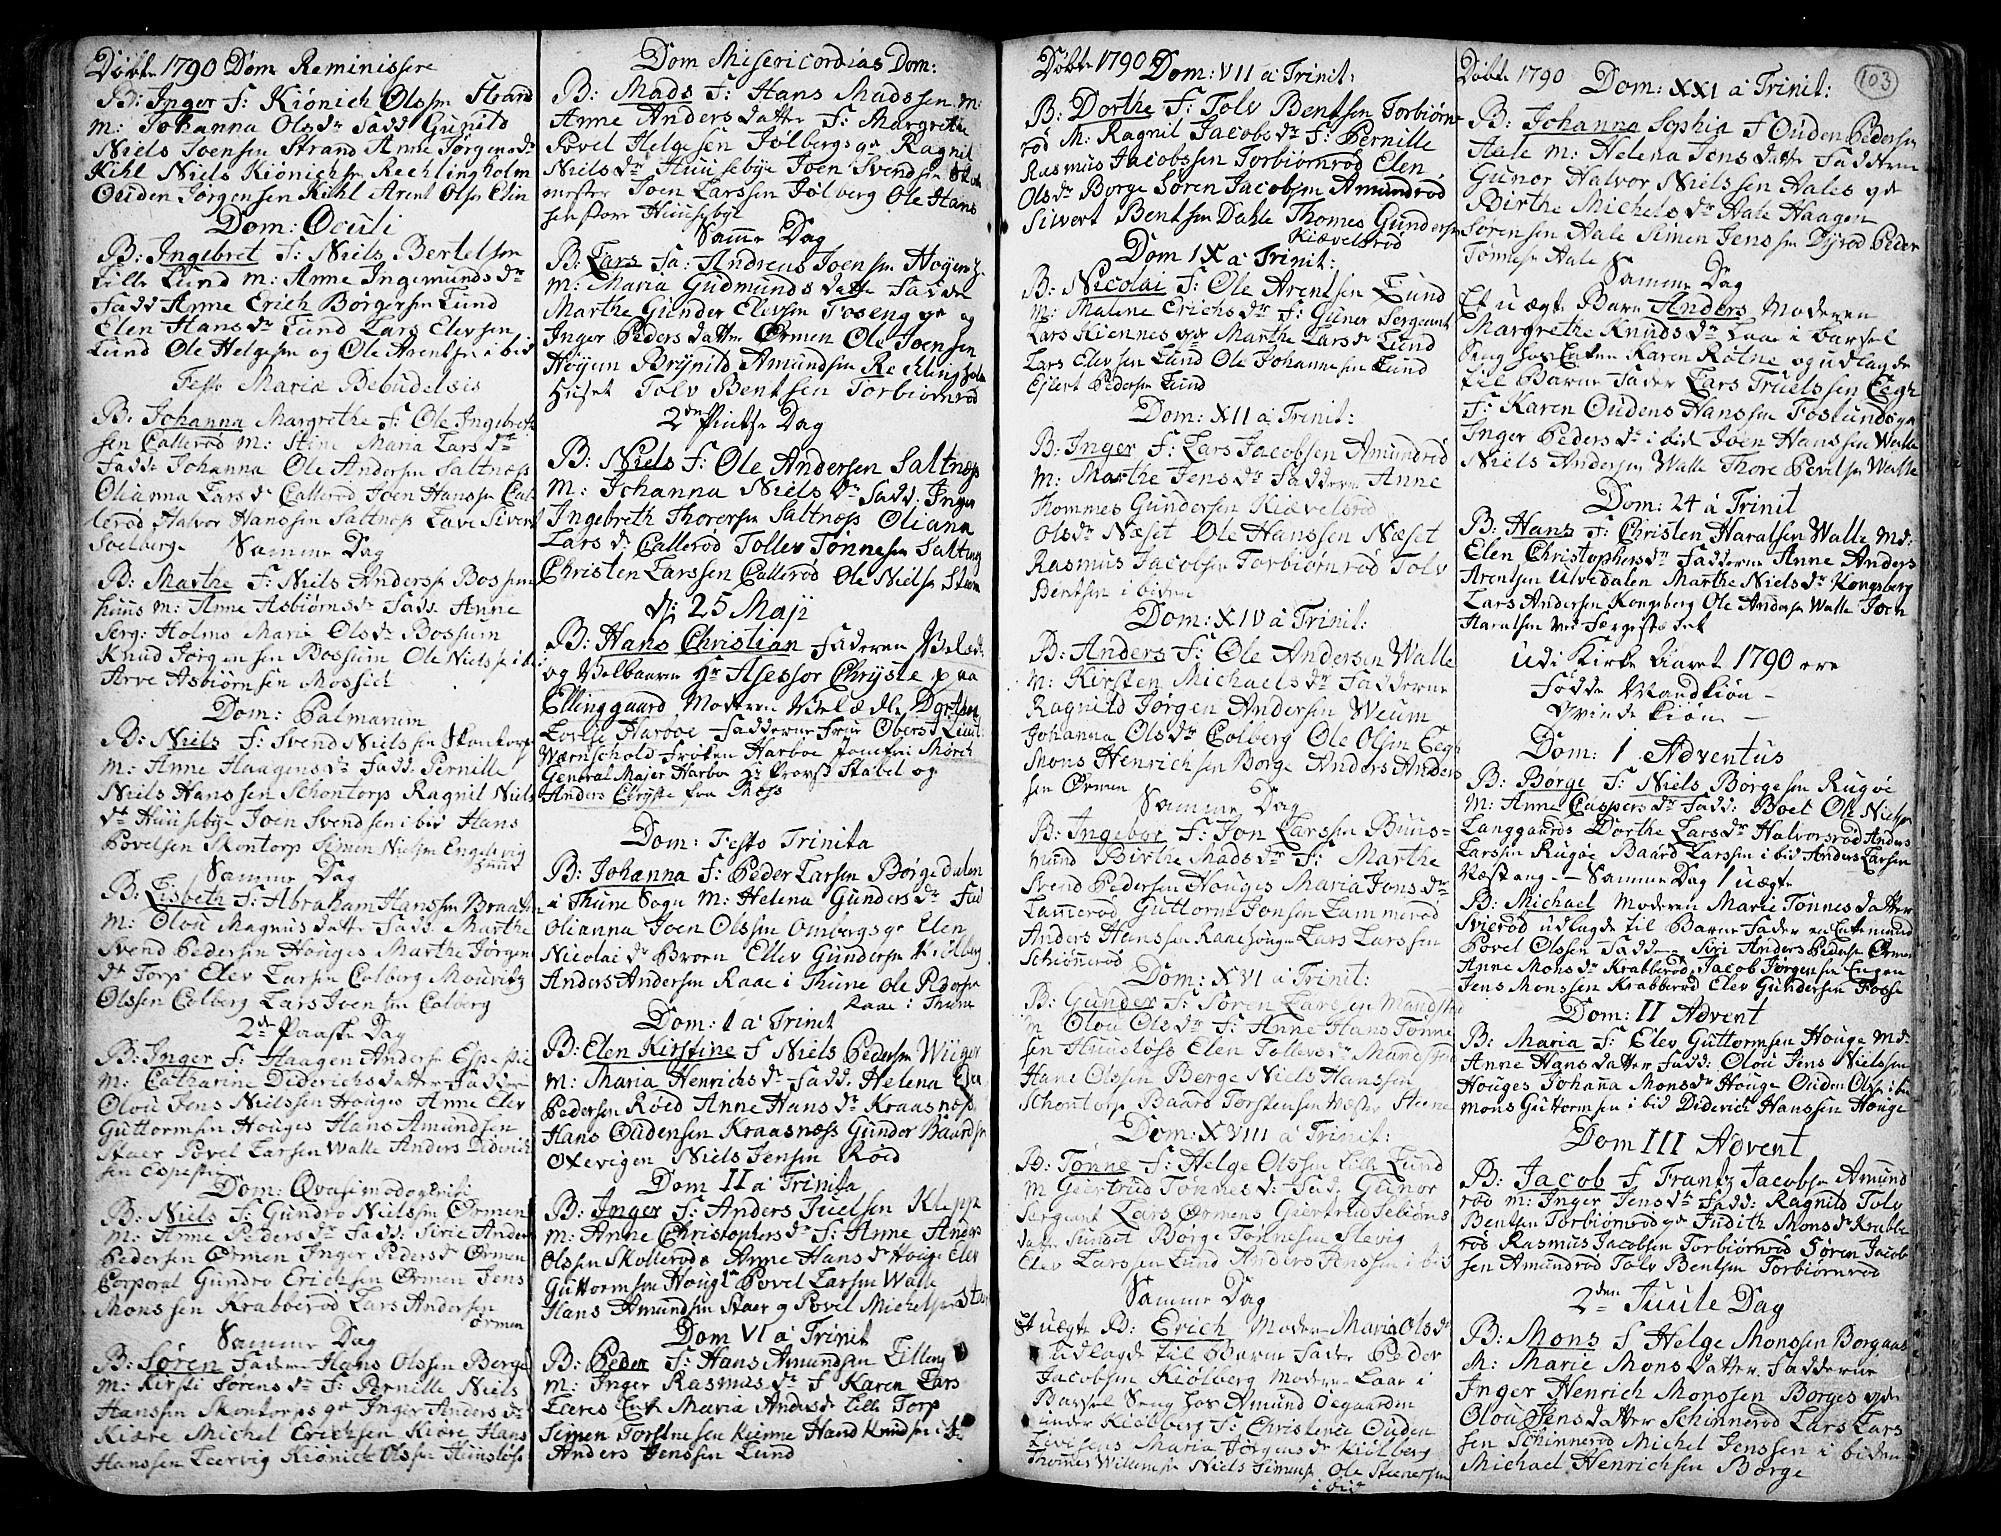 Døbte 1790 Dom Reminissere
B: Inger F: Kiönich Olssen Strand
M: Johanna Olsdr Fadd Gunild
Niels Joensen Strand Anne Jørgensdr
Kihl Niels Kiönichsen Rechlingholm
Ouden Jørgensen Kihl Arent Olsen Elin
Dom: Oculi
B: Ingebret F: Niels Bertelsen
Lille Lund M: Anne Ingemundsdr
Fadd Anne Erich Børgersen Lund
Elen Hansdr Lund Lars Elevsen
Lund Ole Helgesen og Ole Arentsen ibid
Festo Mariæ Bebudelsis
B: Johanna Margrethe F: Ole Ingebreth
sen Callerød M: Stine Maria Larsdr
Fadd: Johanna Ole Andersen Saltnæs
Olianna Larsdr Callerød Joen Hanssen Cal
lerød Halvor Hanssen Saltnæs Lave Sivert
Soelberg
Samme Dag
B: Marthe F: Niels Andersen Bossum
huus M: Anne Asbiørnsdr Fadd. Anne
Serg: Holms Marie Olsdr Bossum
Knud Jørgensen Bossum Ole Nielsen ibd
Arve Asbiørnsen Mossich
Dom: Palmarum
B: Niels F: Svend Nielssen Skontorp
M: Anne Haagensdr Fadd. Pernille
Niels Hanssen Schontorp Ragnil Niels
dr Huusebye Joen Svendsen ibid Hans
Povelsen Skontorp Simen Nielsen Engelsvig
Samme Dag
B: Lisbeth F: Abraham Hanssen Braaten
M: Olou Magnusdatter Fadd. Marthe
Svend Pedersen Houges Marthe Jørgens
dr Torp Elev Larsen Colberg Mouritz
Olssen Colberg Lars Joensen Colberg
2den Paaske Dag
B: Inger F: Haagen Andersen Espestie
M: Catharine Diderichsdatter Fadder
Olou Jens Nielssen Houges Anne Elev
Guttormsen Houges Hans Amundsen
Staer Povel Larssen Walle Anders Diderich
sen Espestie
Dom: Qvasimodogeniti
B: Niels F: Gundro Nielssen Ørmen
M: Anne Pedersdr Fadd: Sirie Anders
Pedersen Ørmen Inger Pedersdr Ørmen
Corporal Gundro Erichsen Ørmen Jens
Monssen Krabberød Lars Andersen
Ørmen
Samme Dag
B: Søren Faderen Hans Olssen Berge
M: Kirsti Sørensdr F: Pernille Niels
Hanssen Skontorps Inger Andersdr
Kiære Michel Erichsen Kiære Hans
Hanssen Leervig Kiönich Olssen Huusløss
Dom Misericordias Dom:
B: Mads F: Hans Madssen M:
Anne Andersdatter F: Margrethe
Povel Helgesen Jølbergs Ragnil
Nielsdr Huusebye Joen Svendsen
Joen Larssen Jølberg Ole Hans
sen store Huusebye
Samme Dag
B: Lars Fa: Andreas Joensen Høyen
M: Maria Gudmundsdatter Fadder
Marthe Gunder Elevsen Toseng og
Inger Pedersdatter Ørmen Ole Joensen
Høyen Brynild Amundsen Rechlingholm
Huset Tolv Bentsen Torbiørnrød
2den Pintse Dag
B: Niels F: Ole Andersen Saltnæs
M: Johanna Nielsdr Fadd. Inger
Ingebreth Thorersen Saltnæs Olianna
Larsdr Callerød Tollev Tønnesen Saltnæs
Christen Larssen Callerød Ole Nielsen Steen
d: 25 Maji
B: Hans Christian Faderen Velæd
og Velbaarne Hr Asessor Chryste paa
Ellinggaard Moderen Velædle Dorthea
Lovise Harboe Fadderne Frue Oberst Lieut:
Wærnschold Frøken Harboe Jomfru: Mørch
General Majer Harboe Hr Provst Stabel og
Anders Chryste fra Moss
Dom: Festo Trinita
B: Johanna F: Peder Larsen Børgedalen
i Thune Sogn M: Helena Gundersdr Fad
Olianna Joen Olssen Ombergs Elen
Nicolaidr Broen Ellev Gundersen Kiölberg
Anders Andersen Raae i Thune Ole Pedersen
Raae i Thune
Dom: I a Trinit
B: Elen Kirstine F Niels Pedersen Wiiger
M: Maria Henrichsdr Fadd. Helena
Pedersen Röed Anne Hansdr Kraasnæss
Hans Oudensen Kraasnæss Gunder Baardsen
Oxevigen Niels Jensen Röed
Dom II a Trinita
B: Inger F: Anders Juelsen Klepp
M: Anne Christophersdr F: Anne Anders
Olssen Skollerøds Anne Hansdr Houge Elev
Guttormsen Houge Povel Larsen Walle
Hans Amundsen Staer og Povel Michelsen
Dom VI a Trinit
B: Peder F: Hans Amundsen Lilleng
M: Inger Rasmusdr F Karen Lars
Leeres Maria Andersdr Lille Torp
Simen Torstensen Kienne Hans Knudsen
Anders Jenssen Lund
Døbte 1790 Dom: VII a Trinit:
B: Dorthe F: Tolv Bentsen Torbiørn
rød M: Ragnil Jacobsdr F: Pernille
Rasmus Jacobssen Torbiørnrød Elen
Olsdr Borge Søren Jacobsen Amundrød
Sivert Bentsen Dahle Thomes Gundersen
Kiævelsrød
Dom IX a Trinit:
B: Nicolai F: Ole Arentsen Lund
M: Malene Erichsdr F: Guner Sergeant
Lars Kiennes Marthe Larsdr Lund
Lars Elevsen Lund Ole Johannesen Lund
Ejlert Pedersen Lund
Dom: XII a Trinit:
B: Inger F: Lars Jacobsen Amundrød
M: Marthe Jensdr Fadderne Anne
Thommes Gundersen Kiævelsrød
Olsdr Næset Ole Hanssen Næset
Rasmus Jacobsen Torbiørnrød Tolv
Bentsen ibiden
Dom: XIV a Trinit:
B: Anders F: Ole Andersen Walle
M: Kirsten Michaelsdr Fadderne
Ragnild Jørgen Andersen Weum
Johanna Olsdr Colberg Ole Olsen Eegh
Mons Henrichsen Borge Anders Anders
sen Ørmen
Samme Dag
B: Ingebor F: Jon Larssen Buus-
hund Birthe Madsdr F: Marthe
Svend Pedersen Houges Maria Jonsdr
Lammerød Guttorm Jonsen Lammerød
Anders Hanssen Ranehouge Lars Larssen
Schiönnerød
Dom: XVI a Trinit:
B: Gunder F: Søren Larssen Mandst
M Olou Olsdr F: Anne Hans Tønne
sen Huusløss Elen Tollevsdr
Hans Olssen Berge Niels Hanssen
Schontorp Baard Torstensen Wæster Steene
Dom: XVIII a Trinit:
B: Tønne F: Helge Olssen Lille Lund
M Giertrud Tønnesdr Fad. Gunor
Sergeant Lars Ørmens Giertrud Tebiøns
datter Sundet Børge Tønnesen Slevig
Elev Larssen Lund Anders Jenssen ibid
Samme Dag
Et uægte B: Erich Moder Maria Olsdr
udlagde til Barne Fader Peder
Jacobsen Kiølberg Moderen Laae i
Barsel Seng hos Amund Öegaarden
under Kiølberg F: Christence Ouden
Levisens Maria Jørgensdr Kiølberg
Thommes Willumsen Niels Simensen Ole Steenersen
ibid
Døbte 1790 Dom: XXI a Trinit: 103
B: Johanna Sophia F Ouden Pedersen
Aale M: Helena Jensdatter Fadderne
Gunor Halvor Nielssen Aales
Birthe Michelsdr Aale Haagen
Sørensen Aale Simen Jenssen Dyrød Peder
Tønnesen Aale
Samme Dag
Et uægte Barn Anders Moderen
Margrethe Knudsdr Laae i barsel
Seng hos Enken Karen Rötne og udlagde
til Barne Fader Lars Truelssen Eegh
F: Karen Oudens Hanssen Foslunds
Inger Pedersdr ibid Joen Hanssen Walle
Niels Andersen Walle Thore Pevelsen Walle
Dom: 24 a Trinit
B: Hans F: Christen Haralsen Walle Md:
Elen Christophersdr Fadderne Anne Anders
Arentsen Ulvedalen Marthe Nielsdr Kongsberg
Lars Andersen Kongsberg Ole Andersen Walle Joen
Haralsen ved Færgestedet
Udi Kirke Aaret 1790 ere
Födde Mandkiön -
Qvindekiön -
Dom: 1 Adventus
B: Børge F: Niels Børgesen Rugöe
M: Anne Caspersdr Fadd: Boel Ole Nielsen
Langgaards Dorthe Larsdr Halvorsrød Anders
Larssen Rugöe Baard Larssen ibid Anders Larsen
Wæstang - Samme Dag 1 uægte
B: Michael Moderen Marie Tønnesdatter
Svierød udlagde til Barne Fader en Enkemand
Povel Olssen Fadderne Siri Anders Pedersen Ørmen
Anne Monsdr Krabberød Jacob Jørgensen Engen
Jens Monssen Krabberød Elev Gundersen Fosse
Dom: II Advent
B: Maria F: Elev Guttormsen Houge Md:
Anne Hansdatter Fadd: Olou Jens Nielssen
Houges Johanna Monsdr Houge Ouden Olsen ibi
Mons Guttormsen ibid Diderich Hanssen Houge
Dom III Advent
B: Jacob F Frantz Jacobsen Amund
rød M: Inger Jensdr Fadd: Ragnild Tolv
Bentsen Torbiørnrød Judith Monsdr Krabbe
rød Rasmus Jacobsen Torbiørnrød Søren Jacob
sen Amundrød Tolv Bentsen Torbiørnrød
2den Juule Dag
B: Mons F Helge Monssen Borgaas
M: Marie Monsdatter Fadderne
Inger Henrich Monssen Borges
Olou Jensdatter Schinnerød Lars Lars
sen Schinnerød Michel Jenssen ibiden
Michael Henrichsen Borge